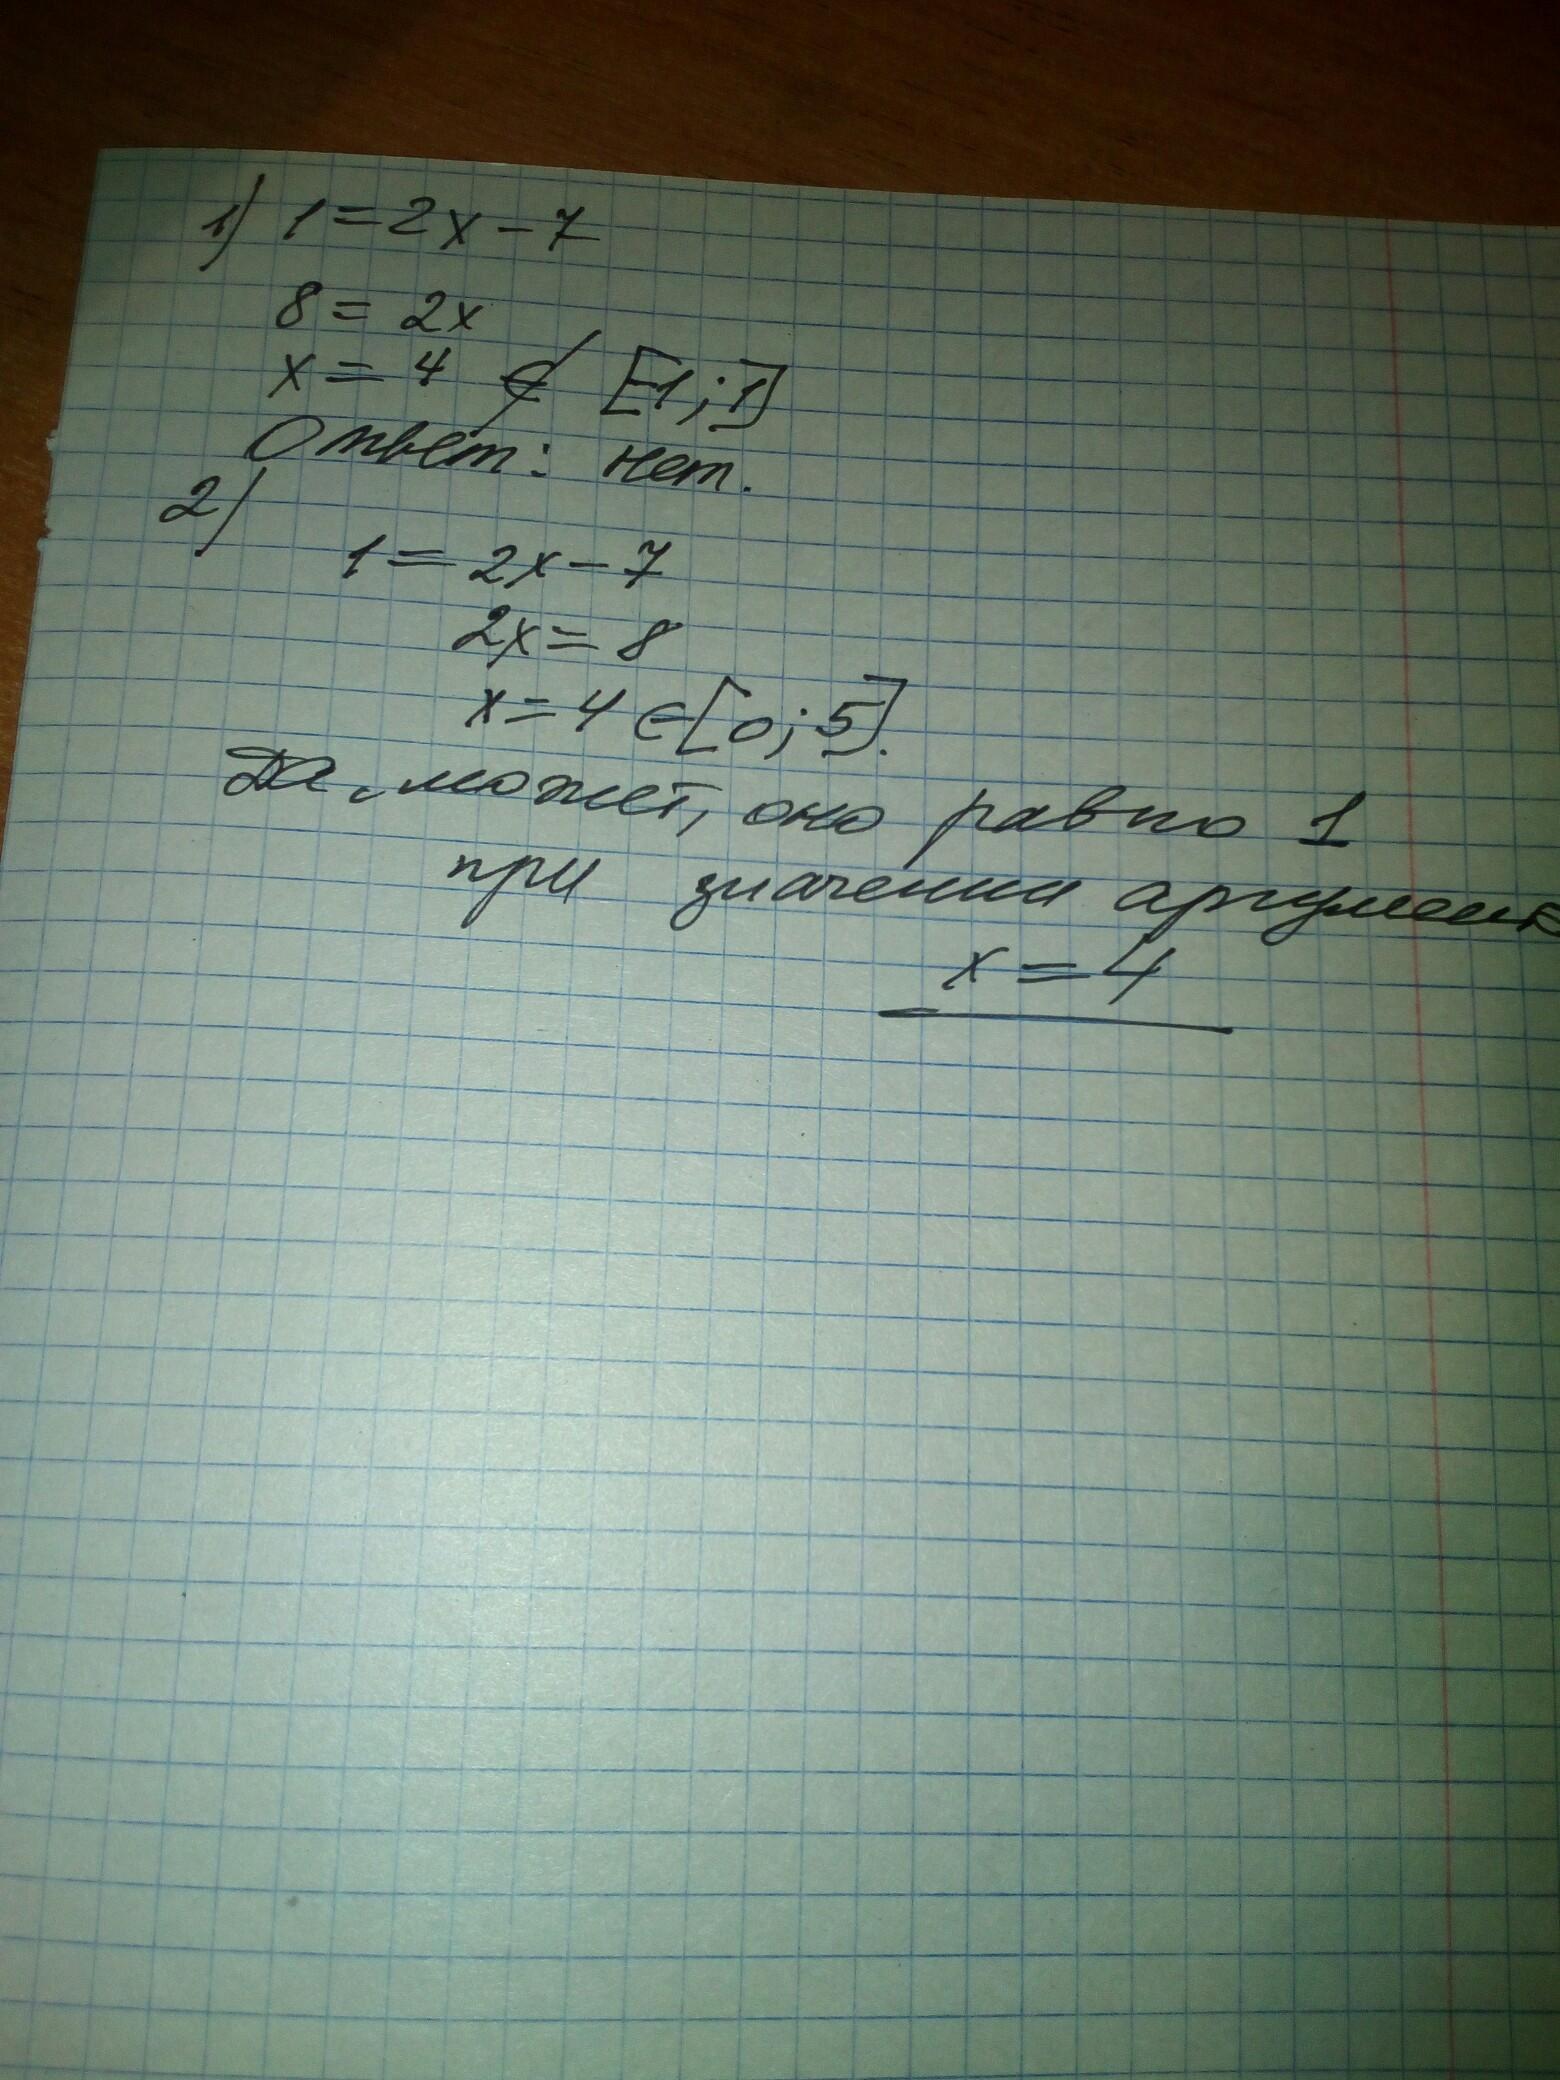 1) 1 = 2x - 7
8 = 2x
x = 4 ∉ [-1; 1]
Ответ: нет.
2)
1 = 2x - 7
2x = 8
x = 4 ∈ [0; 5].
Да, может, оно равно 1
при значении аргумент
x = 4